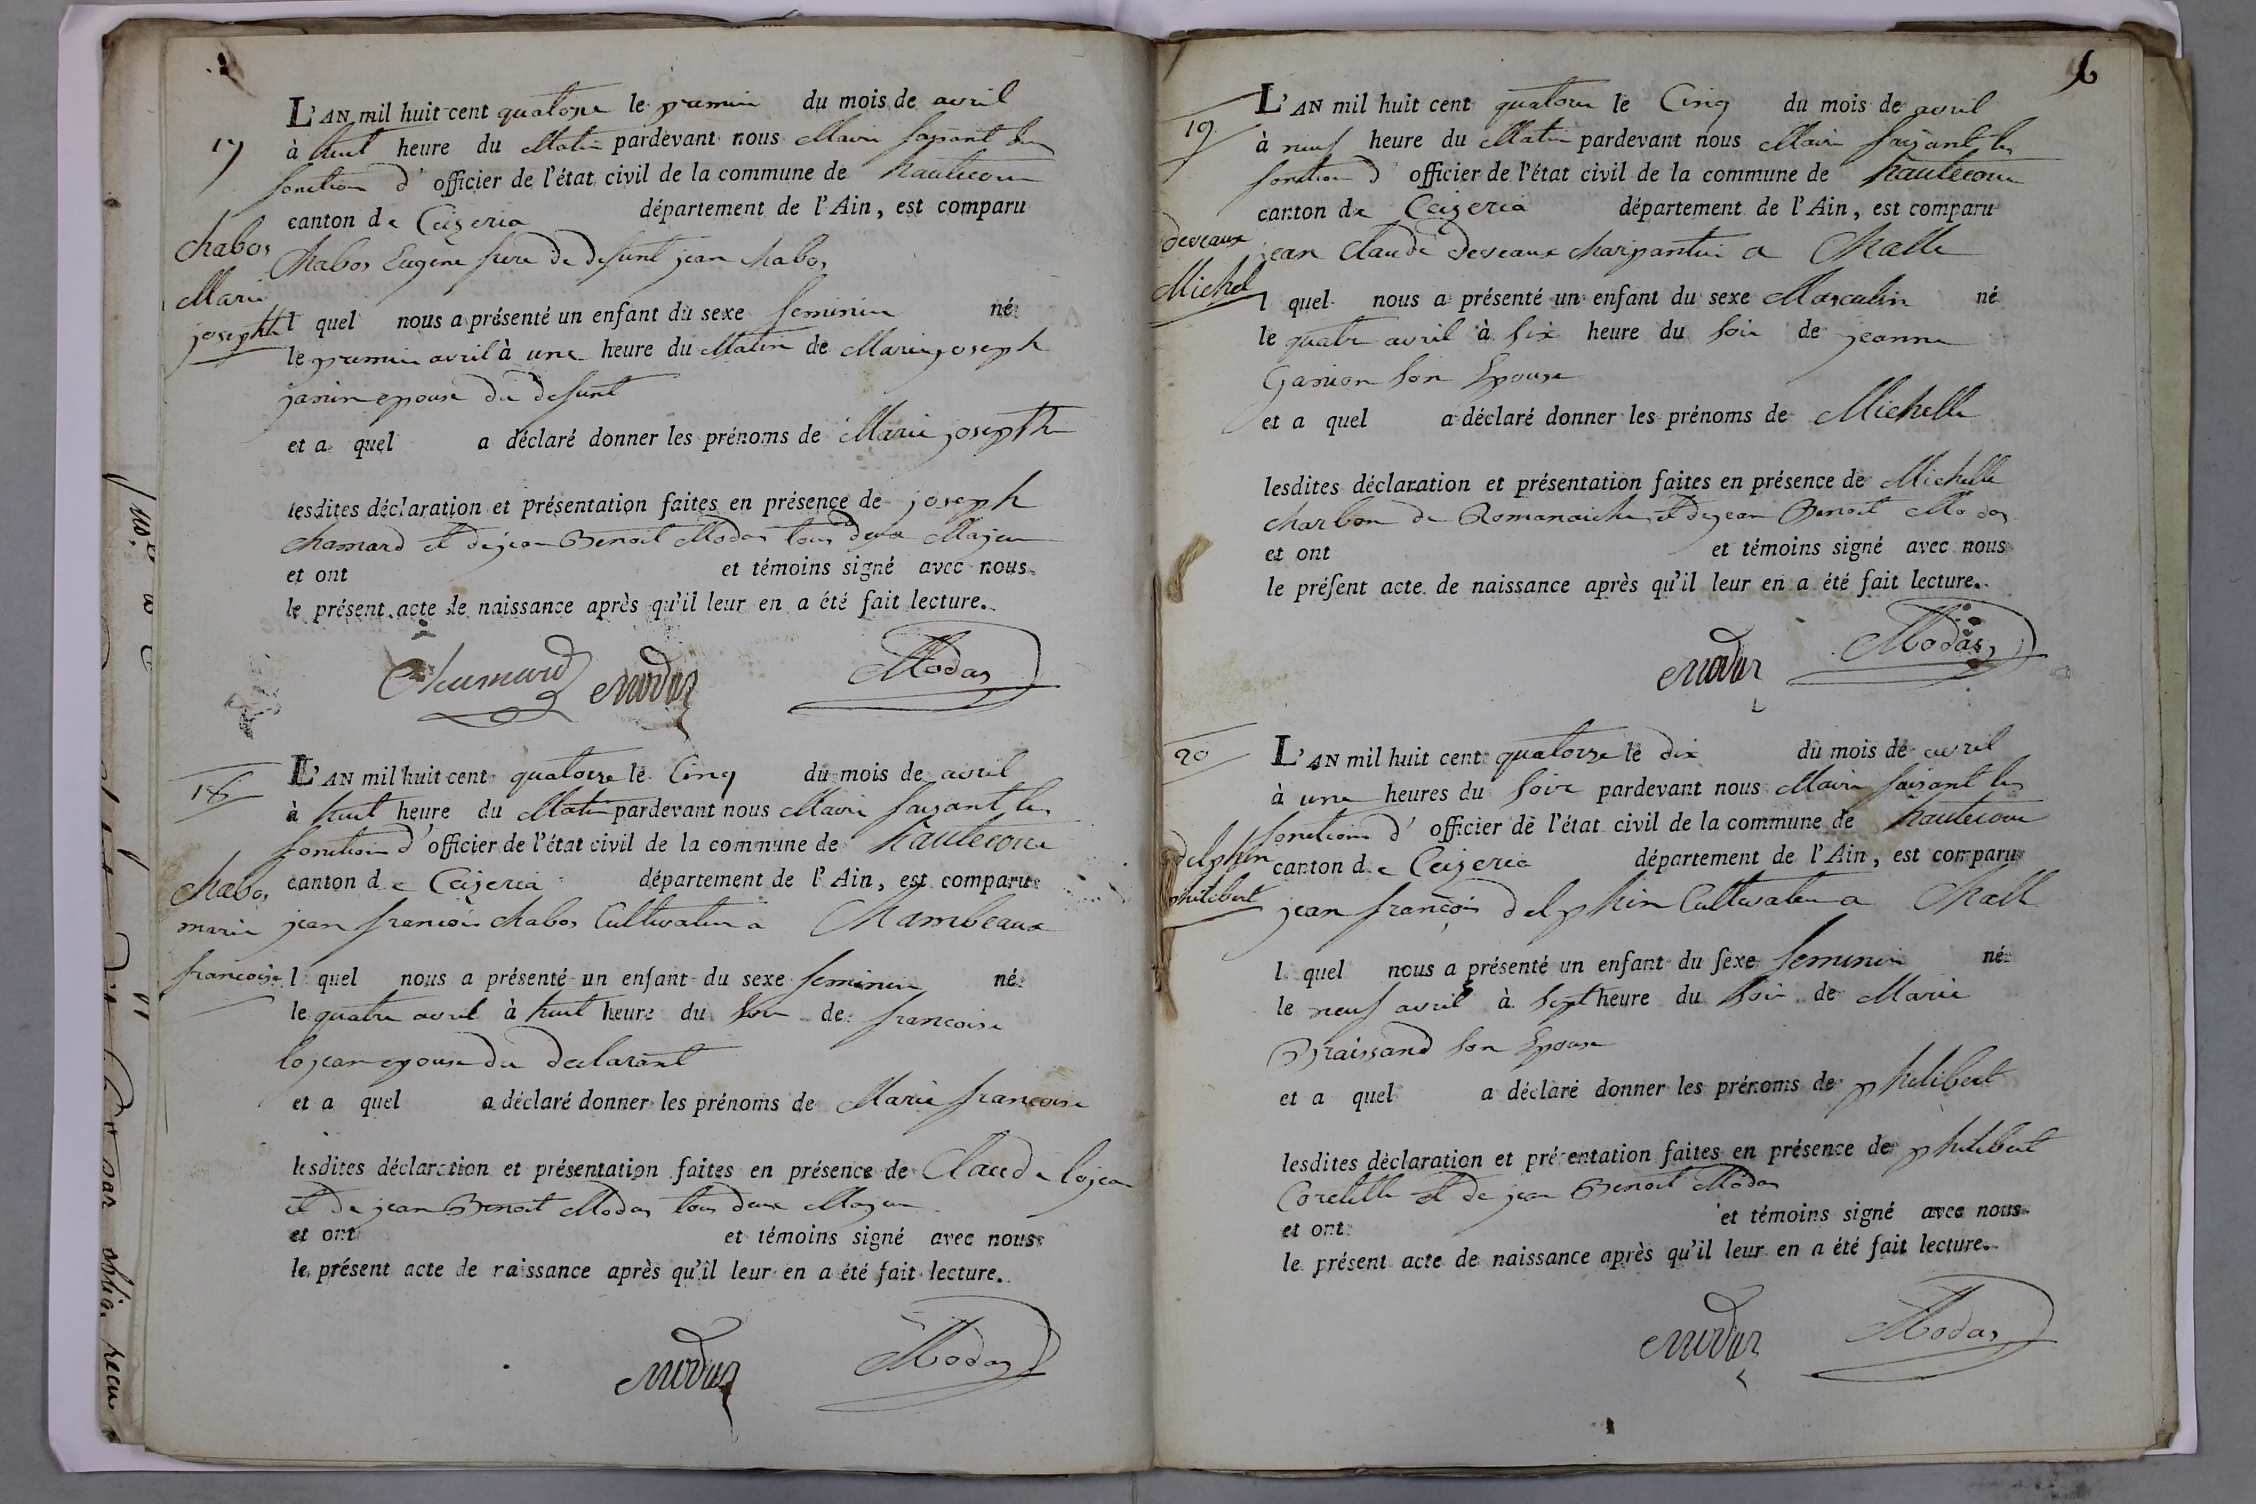 17
chabos
Marie
josephth
L'AN mil huit cent quatorze le premier du mois de avril
à huit heure du Matin pardevant nous Maire faisant les
fonction d' officier de l'état civil de la commune de hautecour
canton de Ceizeria département de l'Ain, est comparu
Chabos Eugène frere de defunt jean chabos
l quel nous a présenté un enfant du sexe feminin né
le premier avril à une heure du Matin de Marie joseph
janin epouse du defunt
et a quel a déclaré donner les prénoms de Marie josepth
lesdites déclaration et présentation faites en présence de joseph
chamard et de jean Benoit Modas tous deux Majeur
et ont et témoins signé avec nous
le présent acte de naissance après qu'il leur en a été fait lecture.
Chamard Modas Modas
18
chabos
marie
francoise
L'AN mil huit cent quatorze le Cinq du mois de avril
à huit heure du Matin pardevant nous Maire faisant les
fonction d' officier de l'état civil de la commune de hautecour
canton de Ceizeria département de l'Ain, est comparu
jean francois chabos Cultivateur a Chambeaux
l quel nous a présenté un enfant du sexe feminin né
le quatre avril à huit heure du soir de francoise
lojean epouse du declarant
et a quel a déclaré donner les prénoms de Marie francoise
lesdites déclaration et présentation faites en présence de Claude lojean
et de jean Benoit Modas tous deux Majeur
et ont et témoins signé avec nous
le présent acte de naissance après qu'il leur en a été fait lecture.
Modas Modas
6
19
deveaux
Michel
L'AN mil huit cent quatorze le Cinq du mois de avril
à neuf heure du Matin pardevant nous Maire faisant les
fonction d' officier de l'état civil de la commune de hautecour
canton de Ceizeria département de l'Ain, est comparu
jean Claude deveaux charpantier a Challe
l quel nous a présenté un enfant du sexe Masculin né
le quatre avril à six heure du soir de jeanne
son Epouse
et a quel a déclaré donner les prénoms de Michelle
lesdites déclaration et présentation faites en présence de Michelle
charbon de Romanaiche et de jean Benoit Modas
et ont et témoins signé avec nous
le présent acte de naissance après qu'il leur en a été fait lecture.
Modas Modas
20
delphin
philibert
L'AN mil huit cent quatorze le dix du mois de avril
à une heures du soir pardevant nous Maire faisant les
fonction d' officier de l'état civil de la commune de hautecour
canton de Ceizeria département de l'Ain, est comparu
jean françois delphin Cultivateur a Challe
l quel nous a présenté un enfant du sexe feminin né
le neuf avril à sept heure du soir de Marie
Braissand son Epouse
et a quel a déclaré donner les prénoms de philibert
lesdites déclaration et présentation faites en présence de philibert
et de jean Benoit Modas
et ont et témoins signé avec nous
le présent acte de naissance après qu'il leur en a été fait lecture.
Modas Modas